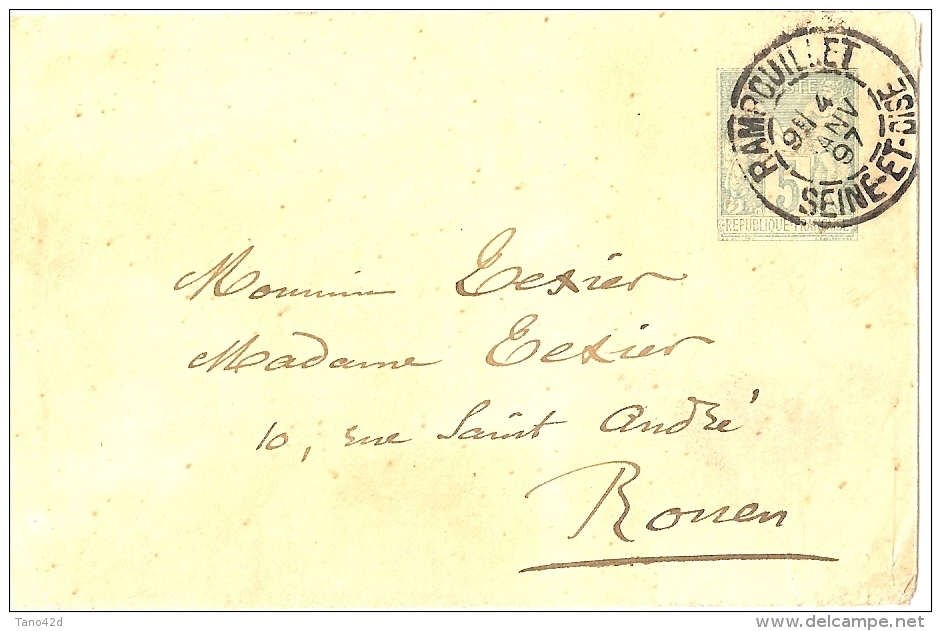 RAMBOUILLET
9E 4
JANV
97
SEINE-ET-OISE
POSTES
5
REPUBLIQUE FRANCAISE
Monsieur Texier
Madame Texier
10, rue Saint André
Rouen
Tano42d
delcampe.net